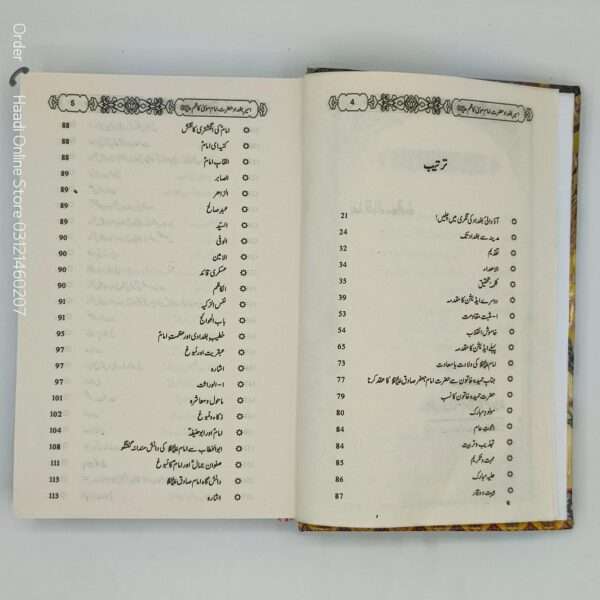 Order Haadi Online Store 03121460207
اسیرِ بغداد حضرت امام موسیٰ کاظم
4
ترتیب
آؤ وادیٔ بغداد کی نگری میں چلیں! 21
مدینہ سے بغداد تک 24
تقدیم 32
الاھداء 34
کلمۂ تحقیق 35
دوسرے ایڈیشن کا مقدمہ 39
۱- مثبت مقاومت 53
خاموش انقلاب 54
پہلے ایڈیشن کا مقدمہ 65
امام کی ولادت باسعادت 73
جناب حمیدہ خاتون سے حضرت امام جعفر صادق کا عقد کرنا 77
حضرت حمیدہ خاتون کا نسب 79
مولود مبارک 80
دعوتِ عام 84
تہذیب و تربیت 84
محبت و تکریم 85
حلیہ مبارک 86
ہیبت و وقار 87
اسیرِ بغداد حضرت امام موسیٰ کاظم
5
امام کی انگشتری کا نقش 88
کنیت ہائے امام 88
القابِ امام 88
الصابر 89
الزاھر 89
عبد صالح 89
السیّد 89
الوفی 90
الامین 90
عسکری قائد 90
الکاظم 90
نفس الزکیہ 91
باب الحوائج 91
خطیب بغدادی اور عظمت امام 95
عبقریت اور نبوغ 97
اشارہ 97
۱- الوراثت 97
ماحول و معاشرہ 101
ذکاء و نبوغ 102
امام اور ابوحنیفہ 104
ابوالخطاب سے امام کی دانش مندانہ گفتگو 108
صفوان جمال اور امام کا نبوغ 111
دانش گاہ امام صادق 113
اشارہ 113